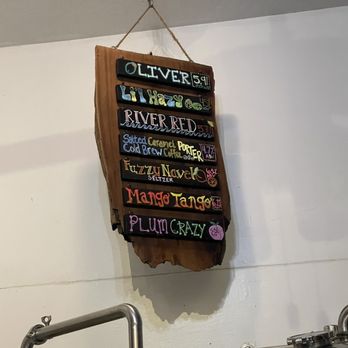 OLIVER 5.9
Lil Hazy
RIVER RED 5.7
Salted Caramel PORTER
Cold Brew Coffee
Fuzzy Navel
SELTZER
Mango Tango
PLUM CRAZY